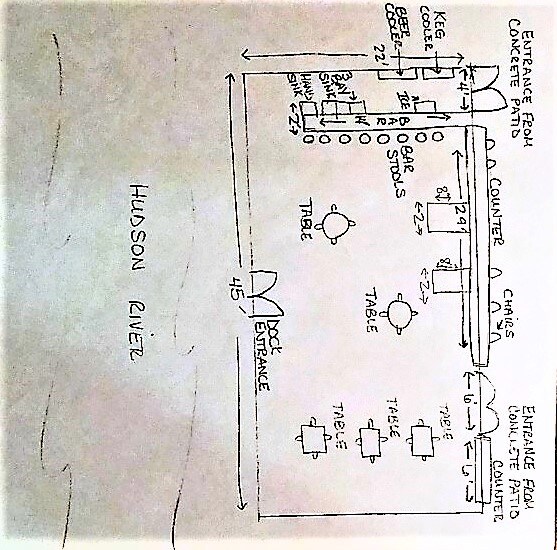 KEG
COOLER
BEER
COOLER
ENTRANCE FROM
CONCRETE PATIO
22'
4'
HAND
SINK
3 BAY
SINK
ICE
BAR
BAR
STOOLS
2
COUNTER
29'
8'
2
8'
2
CHAIRS
TABLE
TABLE
45'
DOCK
ENTRANCE
HUDSON RIVER
TABLE
TABLE
TABLE
6'
6'
ENTRANCE FROM
CONCRETE PATIO
COUNTER